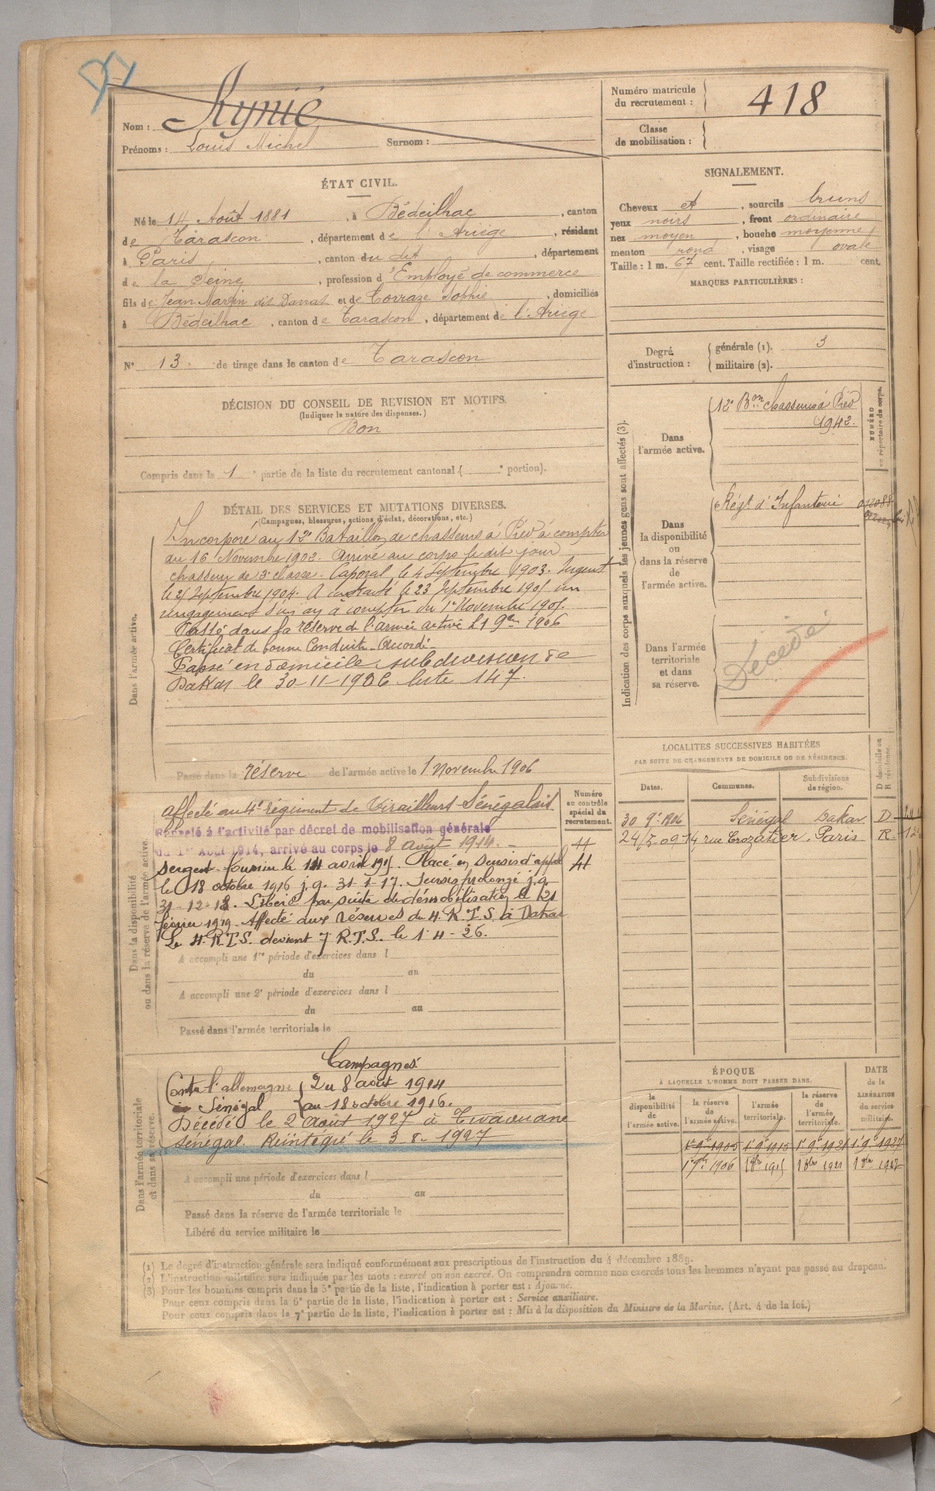 Nom :
Prénoms : Louis Michel Surnom :
Numéro matricule
du recrutement :
418
Classe
de mobilisation :
ÉTAT CIVIL.
Né le 14 Août 1881, à Bédeilhac, canton
de Tarascon, département de l'Ariège, résidant
à Paris, canton du dit, département
de la Seine, profession d'Employé de commerce
fils de Jean Martin dit Darnat et de Sophie, domiciliés
à Bédeilhac, canton de Tarascon, département de l'Ariège
N° 13 de tirage dans le canton de Tarascon
SIGNALEMENT.
Cheveux et, sourcils bruns
yeux noirs, front ordinaire
nez moyen, bouche moyenne
menton rond, visage ovale
Taille : 1 m. 67 cent. Taille rectifiée : 1 m. cent.
MARQUES PARTICULIÈRES :
Degré
d'instruction :
générale (1). 3
militaire (2).
DÉCISION DU CONSEIL DE REVISION ET MOTIFS.
(Indiquer la nature des dispenses.)
Bon
Compris dans la 1e partie de la liste du recrutement cantonal ( e portion).
DÉTAIL DES SERVICES ET MUTATIONS DIVERSES.
(Campagnes, blessures, actions d'éclat, décorations, etc.)
Dans l'armée active.
Incorporé au 12e Bataillon de chasseurs à Pied à compter
du 16 Novembre 1902. Arrivé au corps le dit jour
chasseur de 2e classe. Caporal le 4 Septembre 1903. Sergent
le 21 Septembre 1904. A contracté le 23 Septembre 1905 un
engagement d'un an à compter du 1er Novembre 1905.
Passé dans la réserve de l'armée active le 1 9bre 1906
Certificat de bonne Conduite Accordé.
Passé en domicile subdivision de
Dakar le 30-11-1906 liste 147.
Passé dans la réserve de l'armée active le 1 Novembre 1906
Indication des corps auxquels les jeunes gens sont affectés (3).
Dans
l'armée active.
12e Bon chasseurs à Pied
1942.
NUMÉRO
au répertoire du corps.
Dans
la disponibilité
ou
dans la réserve
de
l'armée active.
Régt d'Infanterie
Dans l'armée
territoriale
et dans
sa réserve.
Décédé
LOCALITÉS SUCCESSIVES HABITÉES
PAR SUITE DE CHANGEMENTS DE DOMICILE OU DE RÉSIDENCE.
Dates. Communes. Subdivisions
de région.
D domicile ou
R résidence.
30 9e 1906 Sénégal Dakar D
24/5 09 74 rue Crozatier Paris R
Dans la disponibilité
ou dans la réserve de l'armée active.
Numéro
au contrôle
spécial du
recrutement.
affecté au 4e régiment de Tirailleurs Sénégalais.
Rappelé à l'activité par décret de mobilisation générale
du 1er Août 1914, arrivé au corps le 8 août 1914.
Sergent fourrier le 14 avril 1915. Placé en sursis d'appel
le 18 octobre 1916 j.q. 31-1-17. Sursis prolongé j.q.
31-12-18. Libéré par suite de démobilisation le 21
février 1919. Affecté aux réserves du 4 R.T.S. à Dakar
Le 4 R.T.S. devient 7 R.T.S. le 1-4-26.
A accompli une 1re période d'exercices dans l
du au
A accompli une 2e période d'exercices dans l
du au
Passé dans l'armée territoriale le
Dans l'armée territoriale
et dans sa réserve.
Campagnes
Contre l'allemagne Du 8 août 1914
Sénégal au 18 octobre 1916.
Décédé le 2 août 1927 à Tivaouane
Sénégal. Réintégré le 3-8-1927
A accompli une période d'exercices dans l
du au
Passé dans la réserve de l'armée territoriale le
Libéré du service militaire le
ÉPOQUE
À LAQUELLE L'HOMME DOIT PASSER DANS.
la
disponibilité
de
l'armée active.
la réserve
de
l'armée active.
l'armée
territoriale.
la réserve
de
l'armée
territoriale.
DATE
de la
LIBÉRATION
du service
militaire.
(1) Le degré d'instruction générale sera indiqué conformément aux prescriptions de l'instruction du 4 décembre 1889.
(2) L'instruction militaire sera indiquée par les mots : exercé ou non exercé. On comprendra comme non exercés tous les hommes n'ayant pas passé au drapeau.
(3) Pour les hommes compris dans la 5e partie de la liste, l'indication à porter est : Ajourné.
Pour ceux compris dans la 6e partie de la liste, l'indication à porter est : Service auxiliaire.
Pour ceux compris dans la 7e partie de la liste, l'indication à porter est : Mis à la disposition du Ministre de la Marine. (Art. 4 de la loi.)